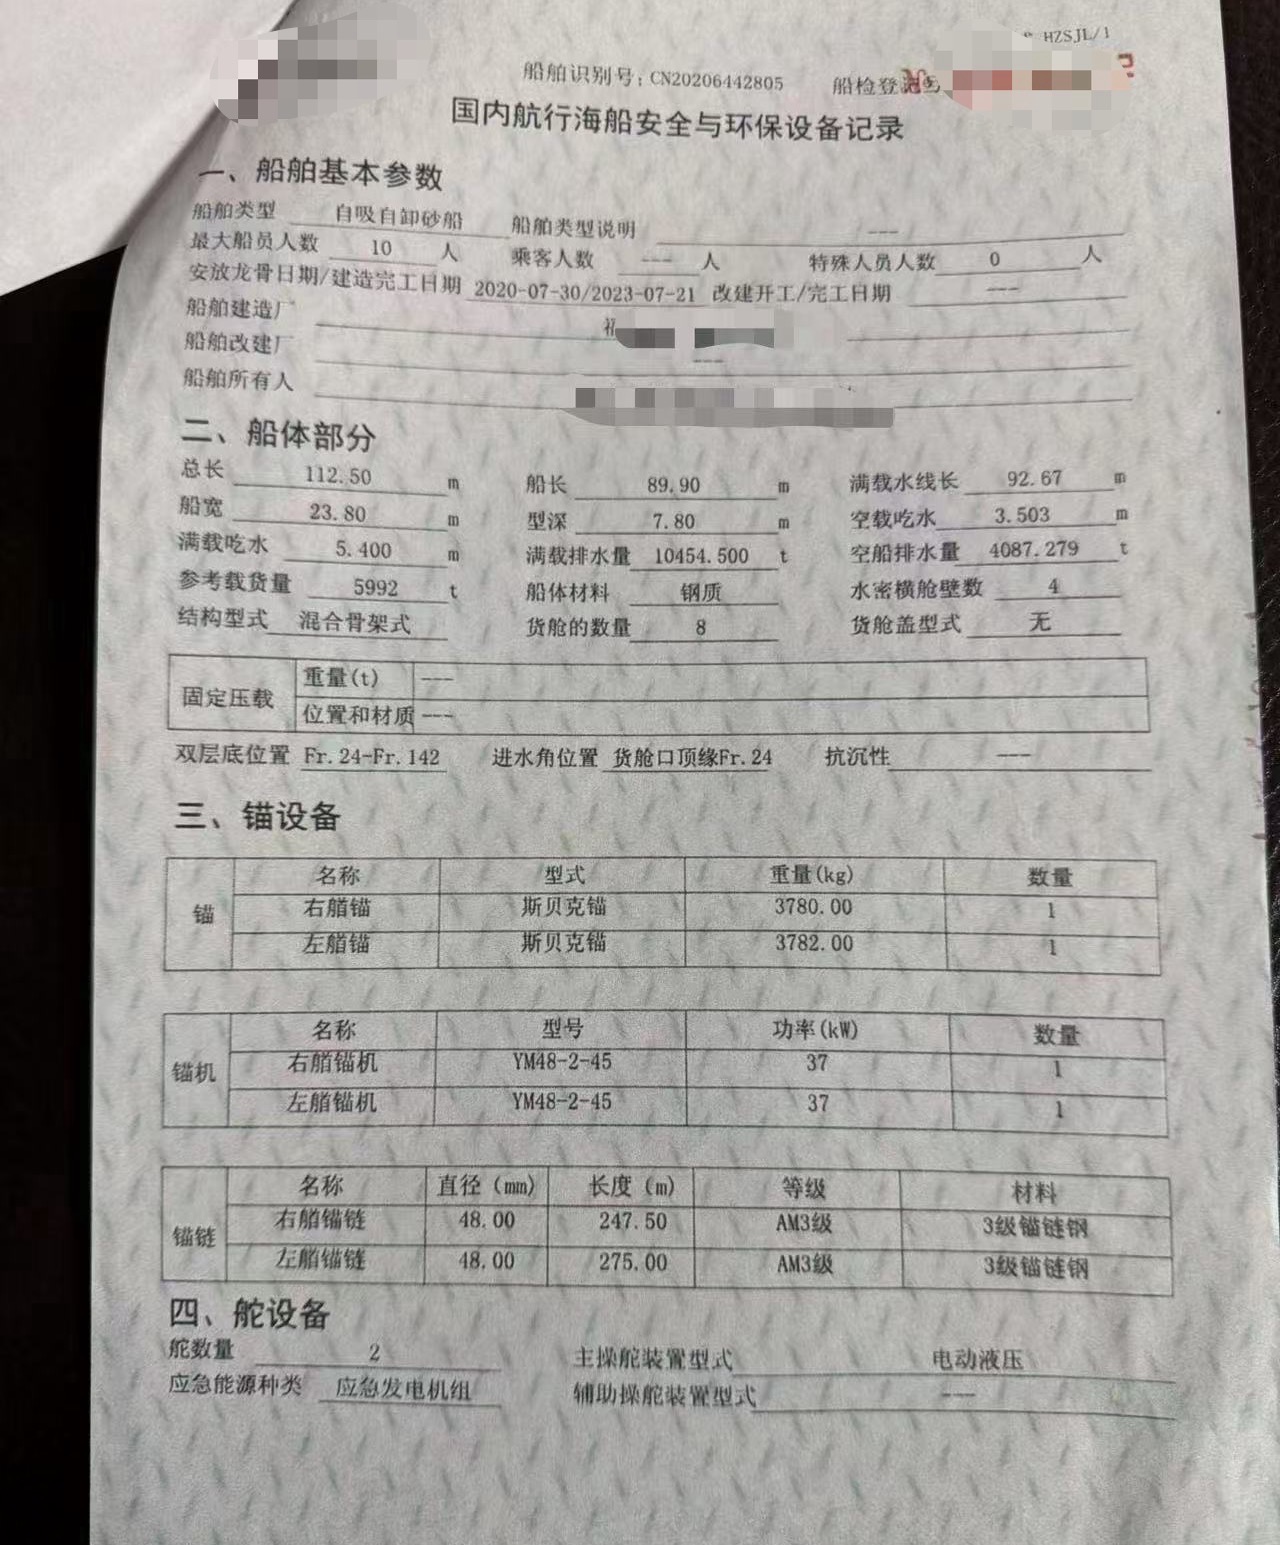 HZSJL/1
船舶识别号:CN20206442805 船检登记号
国内航行海船安全与环保设备记录
一、船舶基本参数
船舶类型 自吸自卸砂船 船舶类型说明 ---
最大船员人数 10 人 乘客人数 --- 人 特殊人员人数 0 人
安放龙骨日期/建造完工日期 2020-07-30/2023-07-21 改建开工/完工日期 ---
船舶建造厂
船舶改建厂 ---
船舶所有人
二、船体部分
总长 112.50 m 船长 89.90 m 满载水线长 92.67 m
船宽 23.80 m 型深 7.80 m 空载吃水 3.503 m
满载吃水 5.400 m 满载排水量 10454.500 t 空船排水量 4087.279 t
参考载货量 5992 t 船体材料 钢质 水密横舱壁数 4
结构型式 混合骨架式 货舱的数量 8 货舱盖型式 无
固定压载 重量(t) ---
位置和材质 ---
双层底位置 Fr.24-Fr.142 进水角位置 货舱口顶缘Fr.24 抗沉性 ---
三、锚设备
锚 名称 型式 重量(kg) 数量
右艏锚 斯贝克锚 3780.00 1
左艏锚 斯贝克锚 3782.00 1
锚机 名称 型号 功率(kW) 数量
右艏锚机 YM48-2-45 37 1
左艏锚机 YM48-2-45 37 1
锚链 名称 直径 (mm) 长度 (m) 等级 材料
右艏锚链 48.00 247.50 AM3级 3级锚链钢
左艏锚链 48.00 275.00 AM3级 3级锚链钢
四、舵设备
舵数量 2 主操舵装置型式 电动液压
应急能源种类 应急发电机组 辅助操舵装置型式 ---